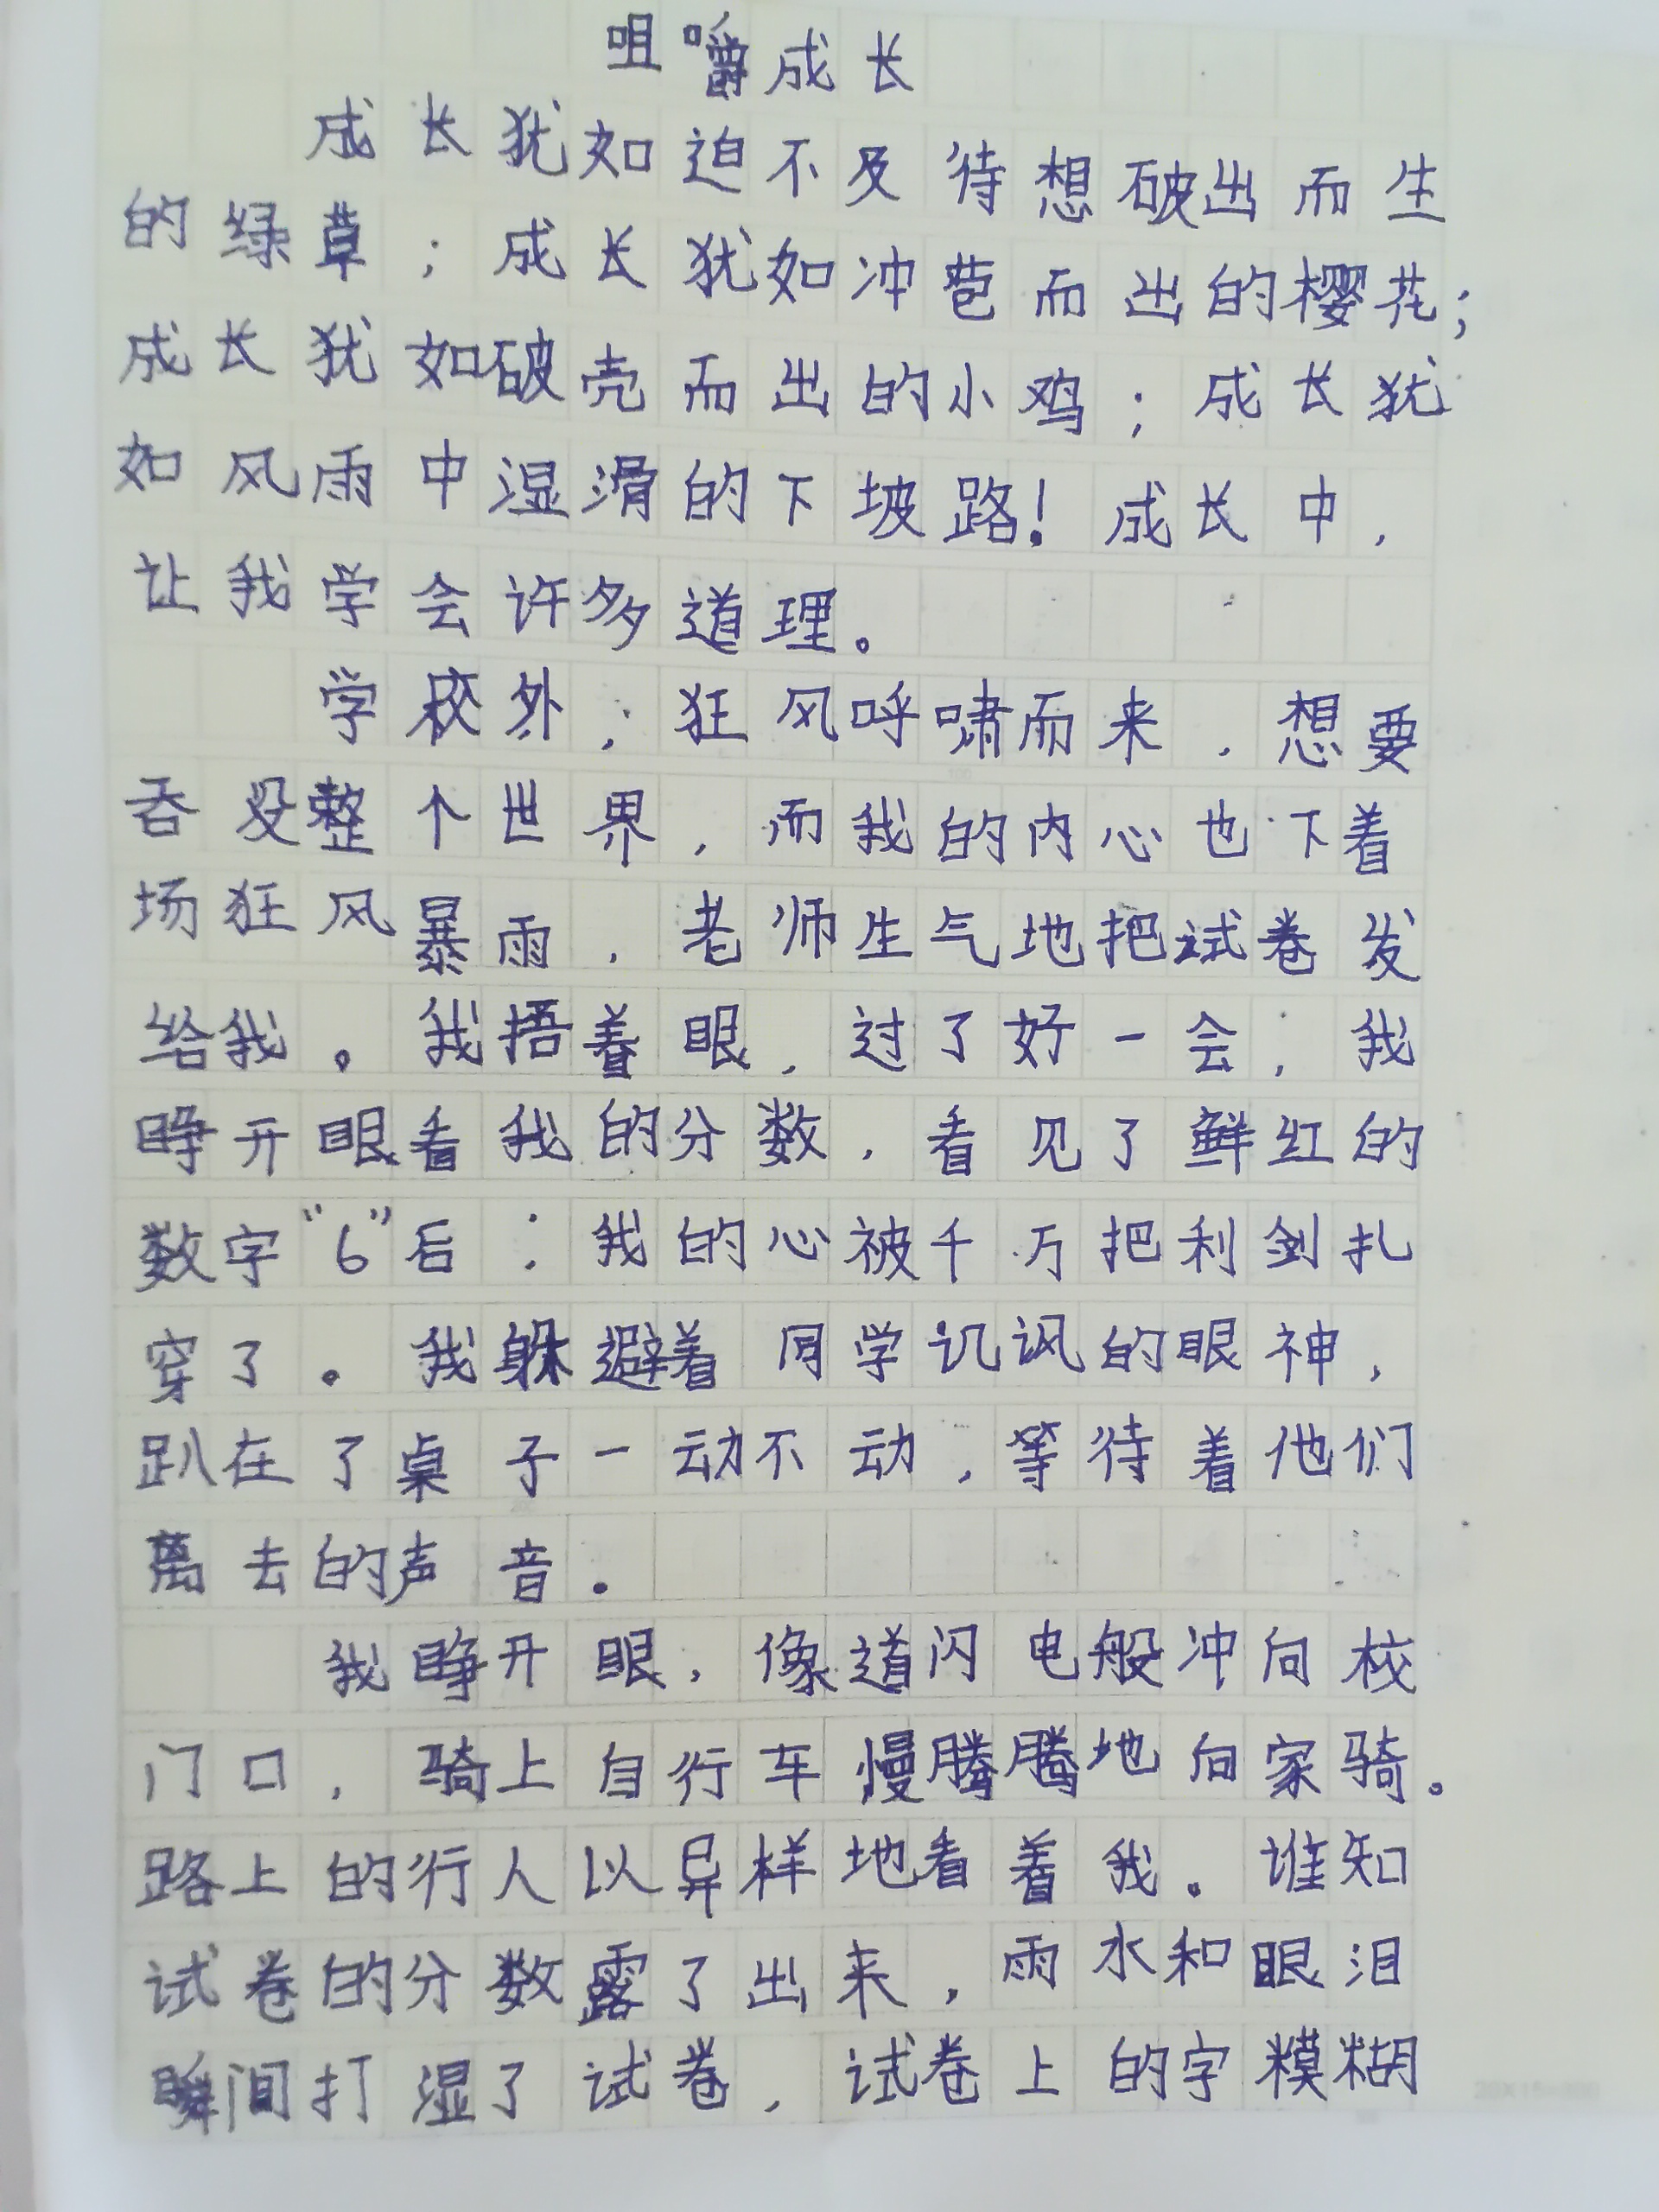 咀嚼成长
成长犹如迫不及待想破出而生
的绿草；成长犹如冲苞而出的樱花；
成长犹如破壳而出的小鸡；成长犹
如风雨中湿滑的下坡路！成长中，
让我学会许多道理。
学校外，狂风呼啸而来，想要
吞没整个世界，而我的内心也下着
场狂风暴雨，老师生气地把试卷发
给我。我捂着眼，过了好一会，我
睁开眼看我的分数，看见了鲜红的
数字“6”后：我的心被千万把利剑扎
穿了。我躲避着同学讥讽的眼神，
趴在了桌子一动不动，等待着他们
离去的声音。
我睁开眼，像道闪电般冲向校
门口，骑上自行车慢腾腾地向家骑。
路上的行人以异样地看着我。谁知
试卷的分数露了出来，雨水和眼泪
瞬间打湿了试卷，试卷上的字模糊